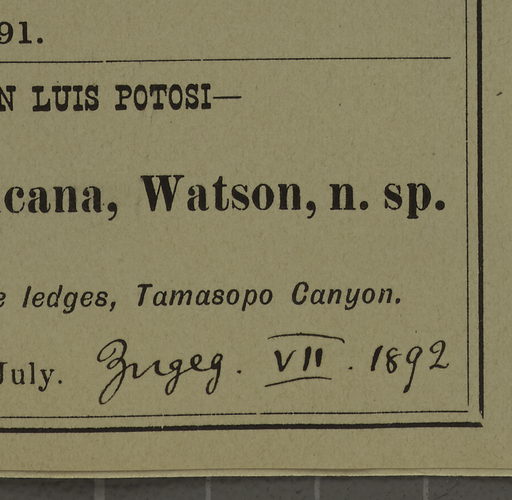 91.
N LUIS POTOSI—
cana, Watson, n. sp.
e ledges, Tamasopo Canyon.
July. Zugeg. VII. 1892